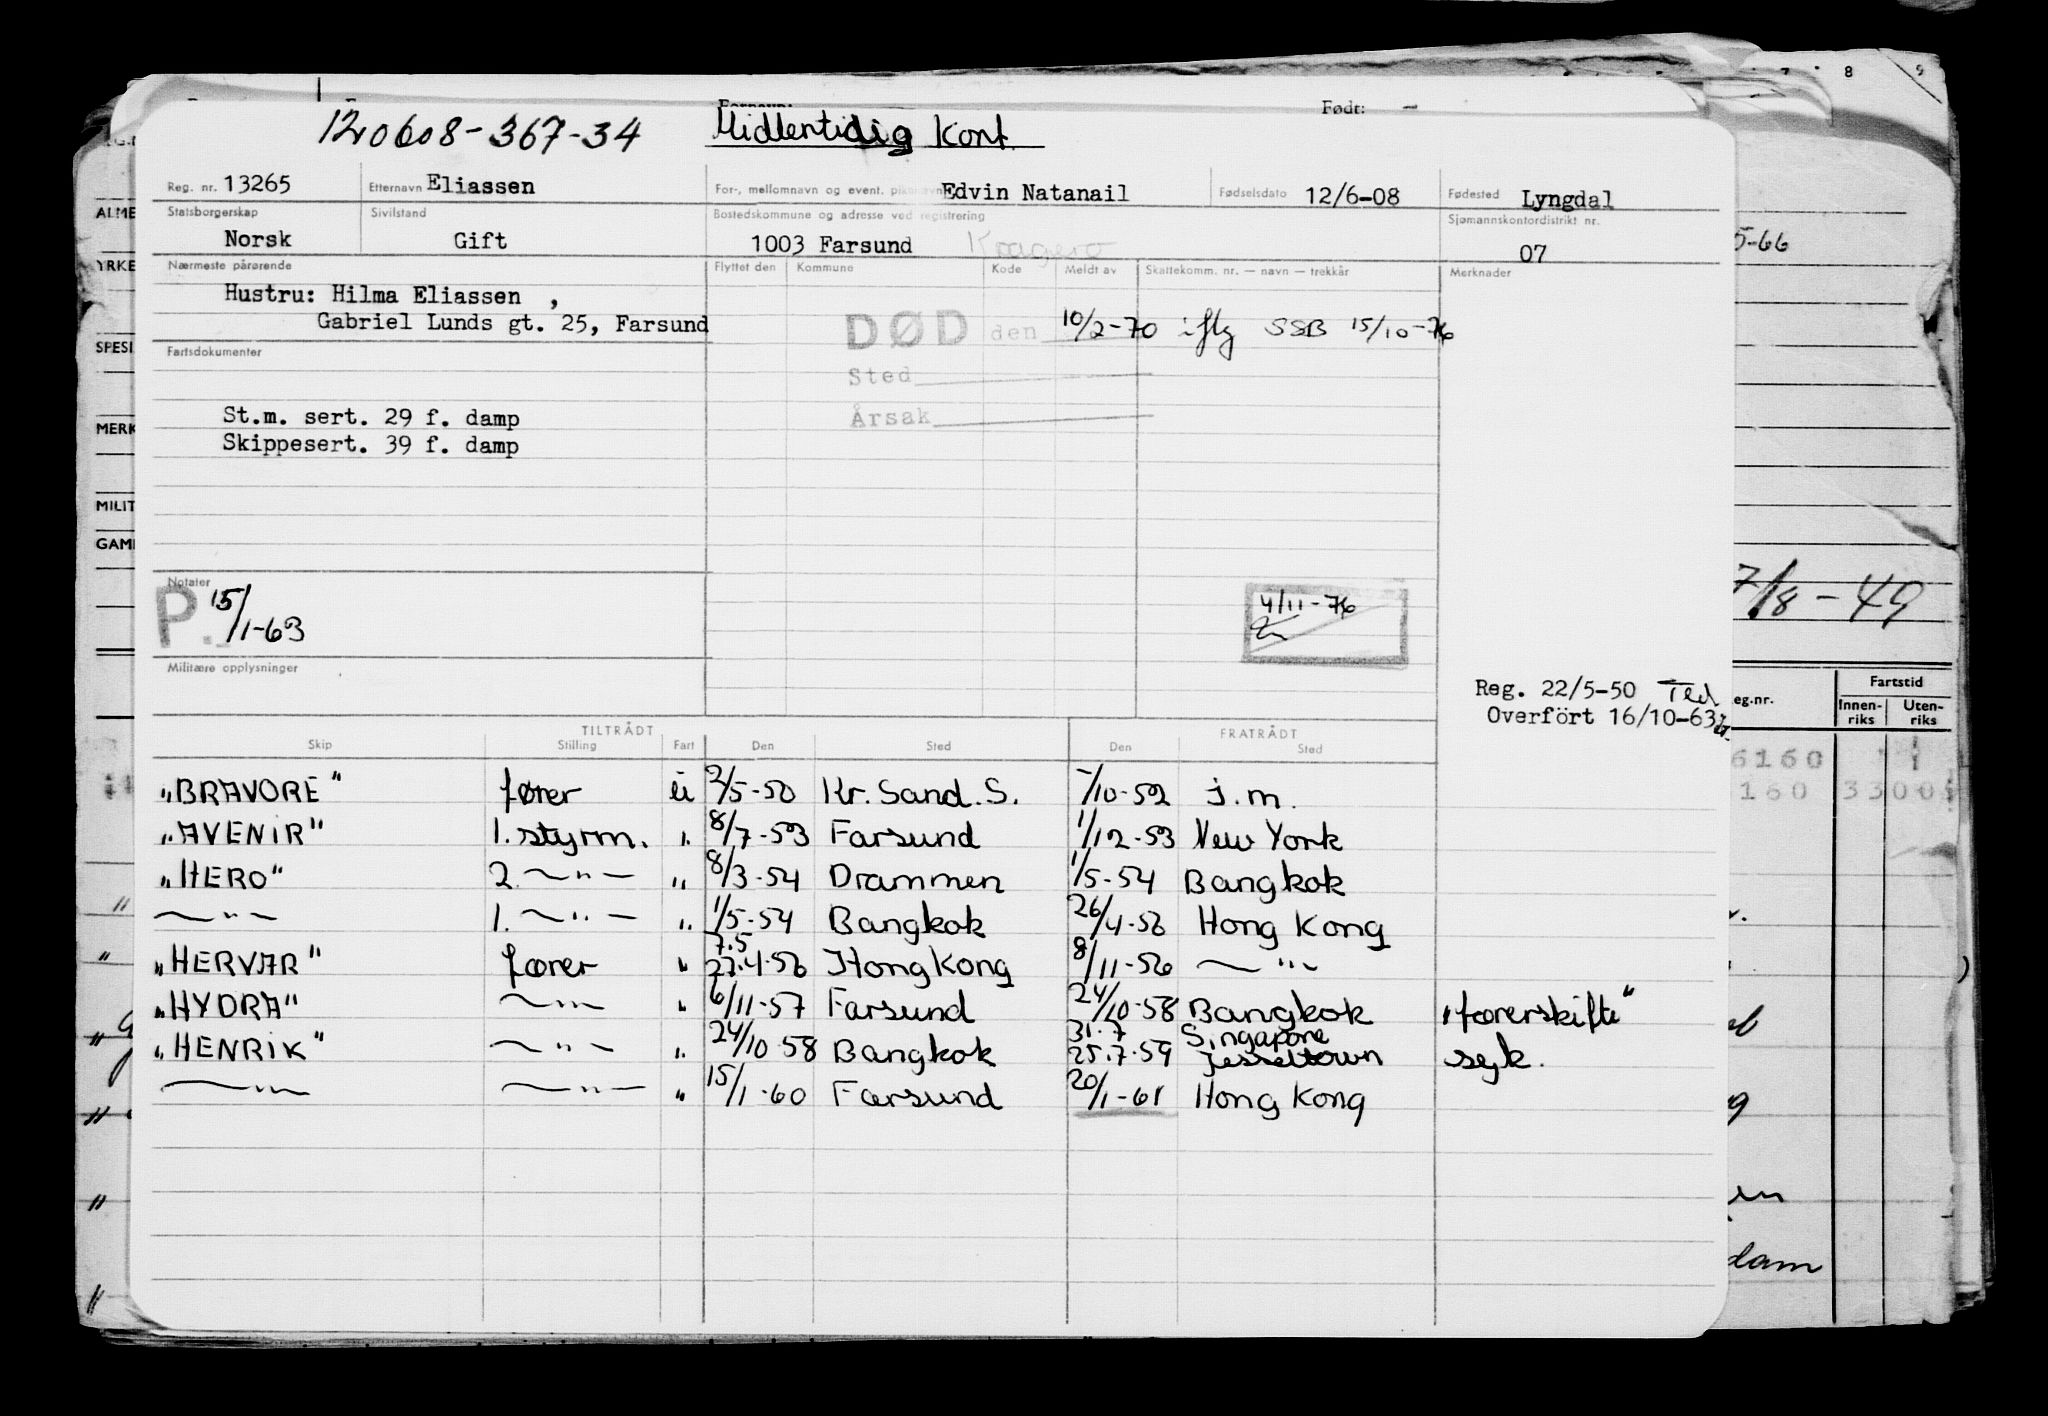 Født: —
120608-367-34 Midlertidig Kort
Reg. nr. 13265 Etternavn Eliassen For-, mellomnavn og event. pikenavn Edvin Natanail Fødselsdato 12/6-08 Fødested Lyngdal
Statsborgerskap Sivilstand Bostedskommune og adresse ved registrering Sjømannskontordistrikt nr.
Norsk Gift 1003 Farsund Kragerø 07
Nærmeste pårørende Flyttet den Kommune Kode Meldt av Skattekomm. nr. — navn — trekkår Merknader
Hustru: Hilma Eliassen ,
Gabriel Lunds gt. 25, Farsund
DØD den 10/2-70 iflg SSB 15/10-76
Fartsdokumenter
Sted
St.m. sert. 29 f. damp
Årsak
Skippesert. 39 f. damp
Notater
P. 15/1-63
4/11-76
Militære opplysninger
Reg. 22/5-50
Overfört 16/10-63
TILTRÅDT FRATRÅDT
Skip Stilling Fart Den Sted Den Sted
"BRAVORE" fører u 2/5-50 Kr.Sand.S. -/10-52 i.m.
"AVENIR" 1. styrm. " 8/7-53 Farsund 1/12-53 New York
"HERO" 2. —"— " 8/3-54 Drammen 1/5-54 Bangkok
—"— 1. —"— " 1/5-54 Bangkok 26/4-56 Hong Kong
7.5
"HERVAR" fører " 27.4-56 Hong Kong 8/11-56 —"—
"HYDRA" —"— " 6/11-57 Farsund 24/10-58 Bangkok "førerskifte"
31.7 Singapore
"HENRIK" —"— " 24/10 58 Bangkok 25.7-59 Jesseltown syk.
—"— —"— " 15/1-60 Farsund 20/1-61 Hong Kong
ALME
YRKE
SPESI
MERK
MILIT
GAM
8 9
5-66
7/8-49
eg.nr. Fartstid
Innen-riks Uten-riks
6160
160 3300
dam